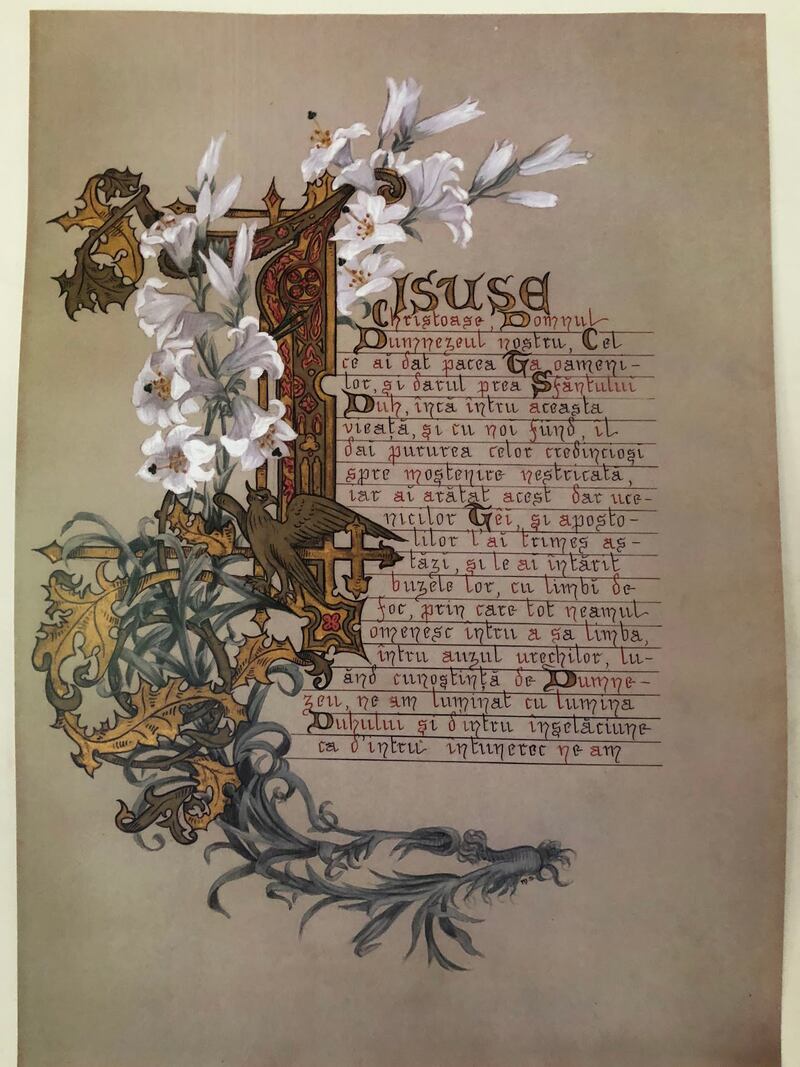 IISUSE
Christoase, Domnul
Dumnezeul nostru, Cel
ce ai dat pacea Ta oameni-
lor, și darul prea Sfântului
Duh, încă întru aceasta
vieață, și cu noi fiind, îl
dai pururea celor credincioși
spre moștenire nestricată,
iar ai arătat acest dar uce-
nicilor Têi, și aposto-
lilor l'ai trimes as-
tăzi, și le ai întărit
buzele lor, cu limbi de
foc, prin care tot neamul
omenesc întru a sa limba,
întru auzul urechilor, lu-
ând cunoștință de Dumne-
zeu, ne am luminat cu lumina
Duhului și d'intru inșelăciune
ca d'intru intunerec ne am